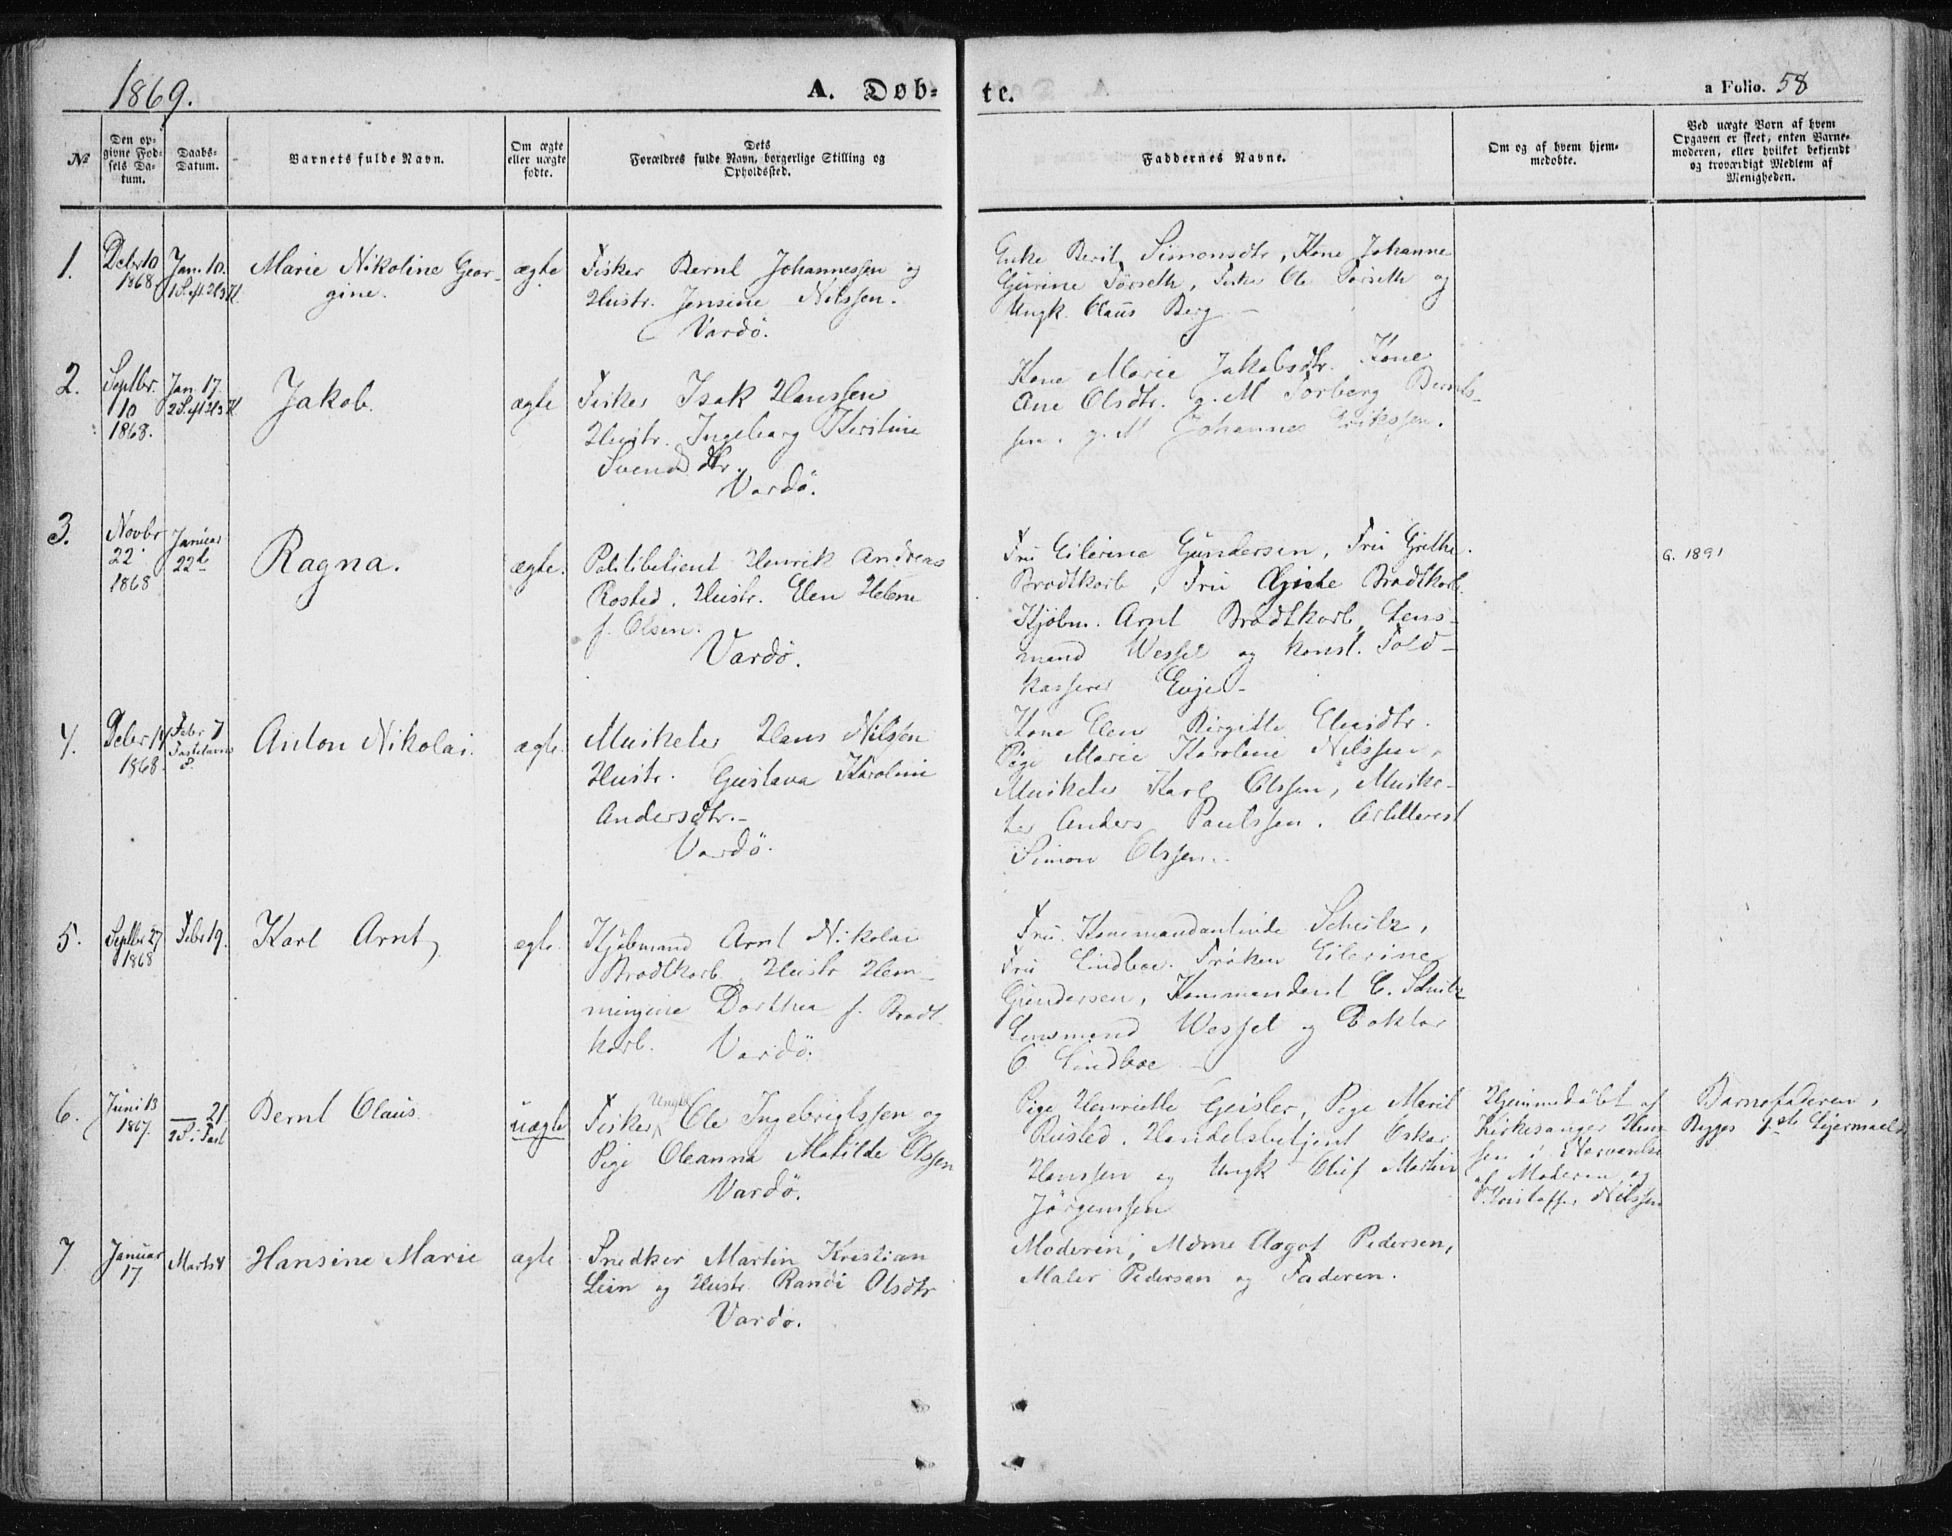 1869.
A. Døb-
te.
a Folio. 58
№
Den op-
givne Fød-
sels Da-
tum.
Daabs-
Datum.
Barnets fulde Navn.
Om ægte
eller uægte
fødte.
Dets
Forældres fulde Navn, borgerlige Stilling og
Opholdssted.
Faddernes Navne.
Om og af hvem hjem-
medøbte.
Ved uægte Børn af hvem
Opgaven er skeet, enten Barne-
moderen, eller hvilket bekjendt
og troværdigt Medlem af
Menigheden.
1.
Debr 10
1868
Jan. 10.
1 S. eft. H3K
Marie Nikoline Geor-
gine.
ægte
Fisker Bernt Johannessen og
Hustr. Jensine Nilssen.
Vardö.
Enke Berit Simonsdtr, Kone Johanne
Gurine Torseth, Fisker Ole Torseth og
Ungk. Claus Berg
2.
Septbr.
10
1868.
Jan. 17.
2 S. eft H3K
Jakob.
ægte
Fisker Isak Hanssen
Hustr. Ingeborg Kerstine
Svendsdtr.
Vardö.
Kone Marie Jakobsdtr. Kone
Ane Olsdtr. g. M Torberg Bernts-
sen. g. M Johannes Erikssen.
3.
Novbr
22
1868
Januar
22de
Ragna.
ægte.
Politibetjent Henrik Andreas
Rosted. Hustr. Elen Helene
f. Olsen.
Vardö.
Fru Eilerine Gundersen, Fru Grethe
Brodtkorb, Fru Brodtkorb
Kjöbm. Arnt Brodtkorb, Lens-
mand Wessel og konst. Told-
kasserer Evje
G. 1891
4.
Debr 14
1868.
Febr 7
Fastelavns
S.
Anton Nikolai.
ægte.
Musketer Hans Nilsen
Hustr. Gustava Karoline
Andersdtr.
Vardö.
Kone Elen Birgitte Elvisdtr.
Pige Marie Karoline Nilssen,
Musketer Karl Olssen, Muske-
ter Anders Paulssen. Artillerist
Simon Olssen.
5.
Septbr 27
1868
Febr 19.
Karl Arnt
ægte.
Kjöbmand Arnt Nikolai
Brodtkorb, Hustr Hem-
mingine Dorthea f. Brodt
korb. Vardö.
Fru Kommandantinde Schultz,
Fru Lindboe. Fröken Eilerine
Gundersen, Kommandant C. Schultz
Lensmand Wessel og Doktor
C. Lindboe
6.
Juni 13
1867.
— 21.
2 S. i Fast
Bernt Claus
uægte
Fisker Ungk Ole Ingebrigtssen og
Pige Oleanna Matilde Olssen
Vardö.
Pige Henriette Geisler, Pige Marit
Rusted. Handelsbetjent Oskar
Hanssen og Ungk Oluf Martin
Jörgenssen
Hjemmedöbt af
Kirkesanger Han-
sen i Nærværelse
af Moderen og
Kristoffer Nilssen
Barnefaderen,
Begges 1ste Leiermaal
7
Januar
17
Marts 8
Hansine Marie
ægte
Snedker Martin Kristian
Lein og Hustr. Randi Olsdtr
Vardö.
Moderen, Mdme Aagot Pedersen,
Maler Pedersen og Faderen.